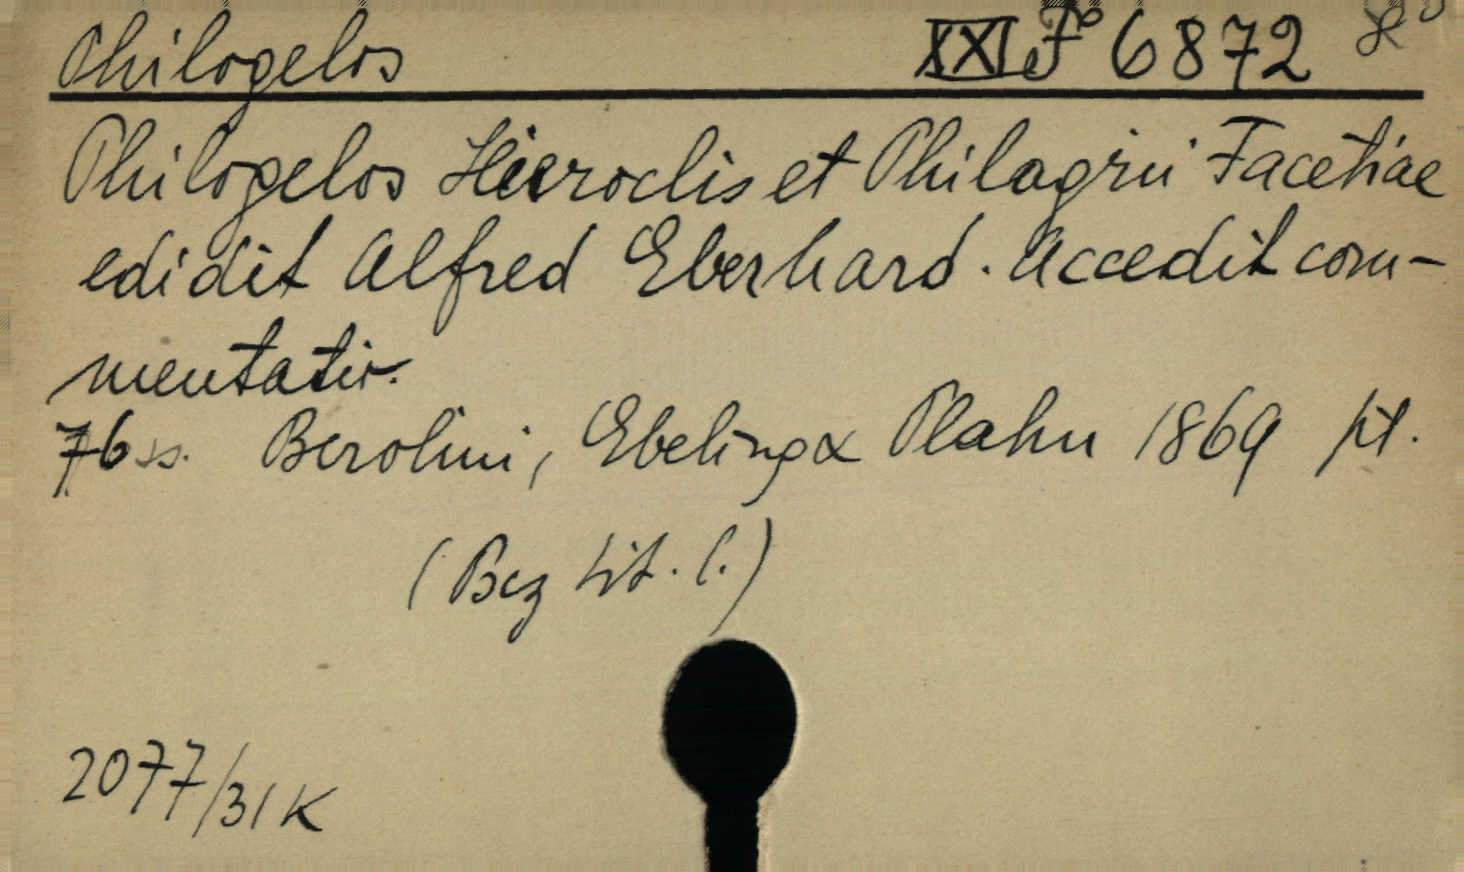 Philogelos XXI F° 6872 8°
Philogelos Hieroclis et Philagrii Facetiae
edidit Alfred Eberhard. Accedit com-
mentatio.
76 ss. Berolini, Ebeling & Plahn 1869 pł.
(Bez tit. l.)
2077/31 K